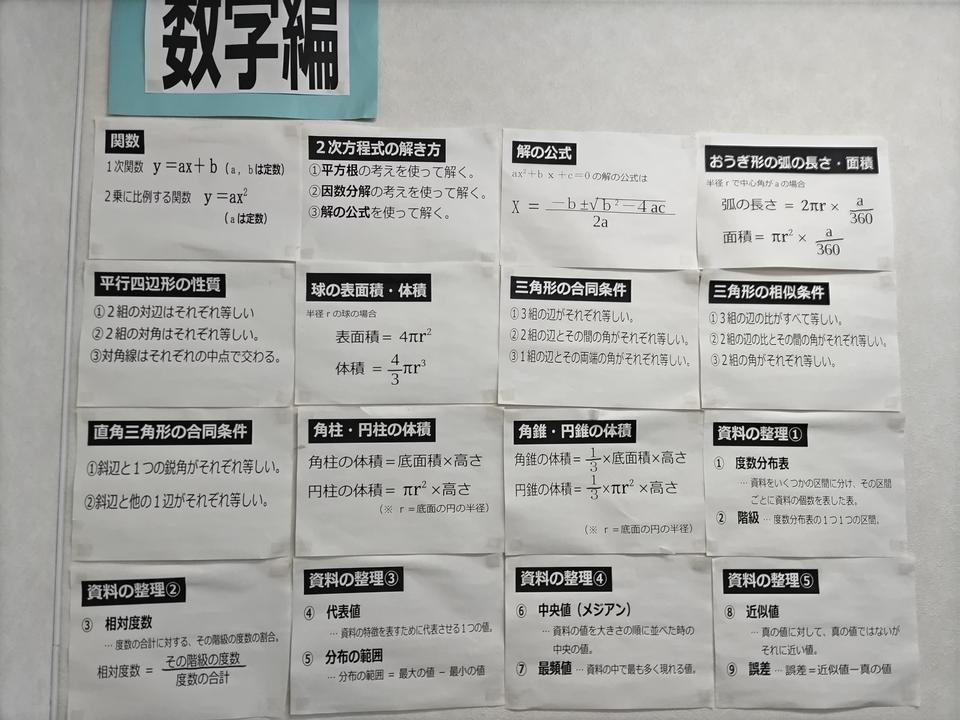 数学編
関数
1次関数 y=ax+b (a, bは定数)
2乗に比例する関数 y=ax²
(aは定数)
2次方程式の解き方
①平方根の考えを使って解く。
②因数分解の考えを使って解く。
③解の公式を使って解く。
解の公式
ax²+bx+c=0の解の公式は
X = −b±√b²−4ac / 2a
おうぎ形の弧の長さ・面積
半径rで中心角がaの場合
弧の長さ = 2πr × a/360
面積= πr² × a/360
平行四辺形の性質
①2組の対辺はそれぞれ等しい
②2組の対角はそれぞれ等しい
③対角線はそれぞれの中点で交わる。
球の表面積・体積
半径rの球の場合
表面積= 4πr²
体積 = 4/3 πr³
三角形の合同条件
①3組の辺がそれぞれ等しい。
②2組の辺とその間の角がそれぞれ等しい。
③1組の辺とその両端の角がそれぞれ等しい。
三角形の相似条件
①3組の辺の比がすべて等しい。
②2組の辺の比とその間の角がそれぞれ等しい。
③2組の角がそれぞれ等しい。
直角三角形の合同条件
①斜辺と1つの鋭角がそれぞれ等しい。
②斜辺と他の1辺がそれぞれ等しい。
角柱・円柱の体積
角柱の体積=底面積×高さ
円柱の体積= πr²×高さ
(※ r=底面の円の半径)
角錐・円錐の体積
角錐の体積=1/3×底面積×高さ
円錐の体積=1/3×πr²×高さ
(※ r=底面の円の半径)
資料の整理①
① 度数分布表
… 資料をいくつかの区間に分け、その区間
ごとに資料の個数を表した表。
② 階級 … 度数分布表の1つ1つの区間。
資料の整理②
③ 相対度数
… 度数の合計に対する、その階級の度数の割合。
相対度数 = その階級の度数 / 度数の合計
資料の整理③
④ 代表値
… 資料の特徴を表すために代表させる1つの値。
⑤ 分布の範囲
… 分布の範囲 = 最大の値 − 最小の値
資料の整理④
⑥ 中央値（メジアン）
… 資料の値を大きさの順に並べた時の
中央の値。
⑦ 最頻値 … 資料の中で最も多く現れる値。
資料の整理⑤
⑧ 近似値
… 真の値に対して、真の値ではないが
それに近い値。
⑨ 誤差 … 誤差=近似値−真の値